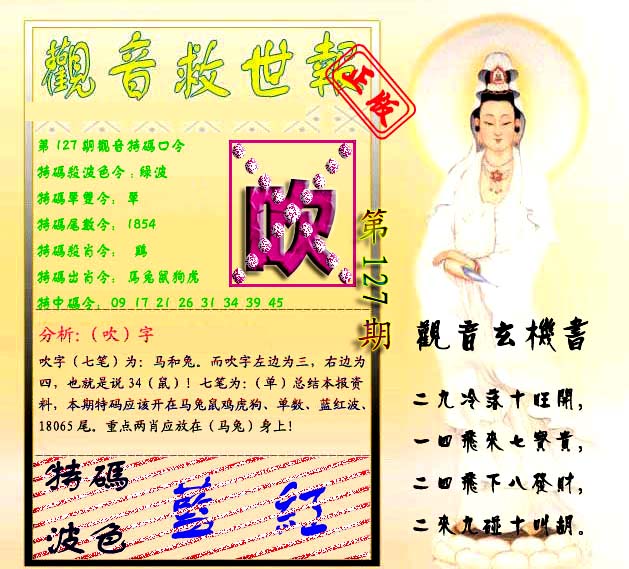 觀音救世報
正版
第127期觀音特碼口令
特碼殺波色令:綠波
特碼單雙令: 單
特碼尾數令: 1854
特碼殺肖令: 鷄
特碼出肖令: 馬兔鼠狗虎
特中碼令: 09 17 21 26 31 34 39 45
吹
第127期
分析:(吹)字
吹字(七笔)为:马和兔。而吹字左边为三,右边为
四,也就是说34(鼠)!七笔为:(单)总结本报资
料,本期特码应该开在马兔鼠鸡虎狗、单数、蓝红波、
18065尾。重点两肖应放在(马兔)身上!
特碼
波色
藍 紅
觀音玄機書
二九冷落十旺開,
一四飛來七寳貴,
二四飛下八發財,
二來九碰十叫胡。